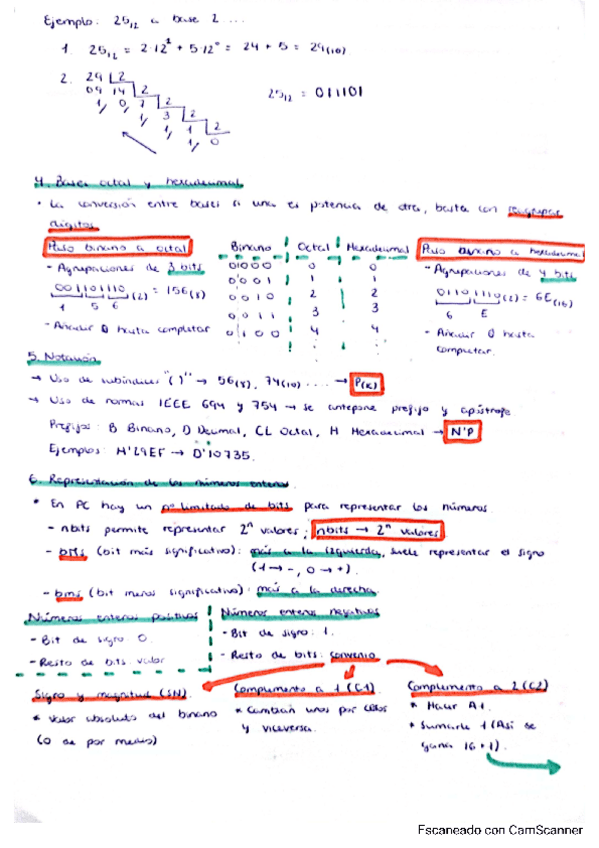 Ejemplo: 25₁₂ a base 2 ....
1. 25₁₂ = 2·12¹ + 5·12⁰ = 24 + 5 = 29(10)
2. 29 2
09 14 2
1, 0, 7 2
1, 3 2
1, 1 2
1, 0
25₁₂ = 011101
4. Bases octal y hexadecimal
• La conversión entre bases si una es potencia de otra, basta con reagrupar
dígitos.
Paso binario a octal
- Agrupaciones de 3 bits
001101110(2) = 156(8)
1 5 6
- Añadir 0 hasta completar
Binario Octal Hexadecimal
00000 0 0
0001 1 1
0010 2 2
0011 3 3
0100 4 4
Paso binario a hexadecimal
- Agrupaciones de 4 bits
01101110(2) = 6E(16)
6 E
- Añadir 0 hasta
completar.
5. Notación
→ Uso de subíndices "( )" → 56(8), 74(10) .... → P(K)
→ Uso de normas IEEE 694 y 754 → se antepone prefijo y apóstrofe
Prefijos: B Binario, D Decimal, CL Octal, H Hexadecimal → N'P
Ejemplos: H'29EF → D'10735.
6. Representación de los números enteros.
* En PC hay un nº limitado de bits para representar los números.
- nbits permite representar 2ⁿ valores; nbits → 2ⁿ valores
- bms (bit más significativo): más a la izquierda, suele representar el signo
(1 → -, 0 → +).
- bms (bit menos significativo): más a la derecha.
Números enteros positivos
- Bit de signo 0.
- Resto de bits: valor
Números enteros negativos
- Bit de signo: 1.
- Resto de bits: convenio
Signo y magnitud (SN).
* Valor absoluto del binario
(0 de por medio)
Complemento a 1 (C1)
* Cambian unos por ceros
y viceversa.
Complemento a 2 (C2)
* Hacer A1.
* Sumarle 1 (Así se
gana 16+1).
Escaneado con CamScanner